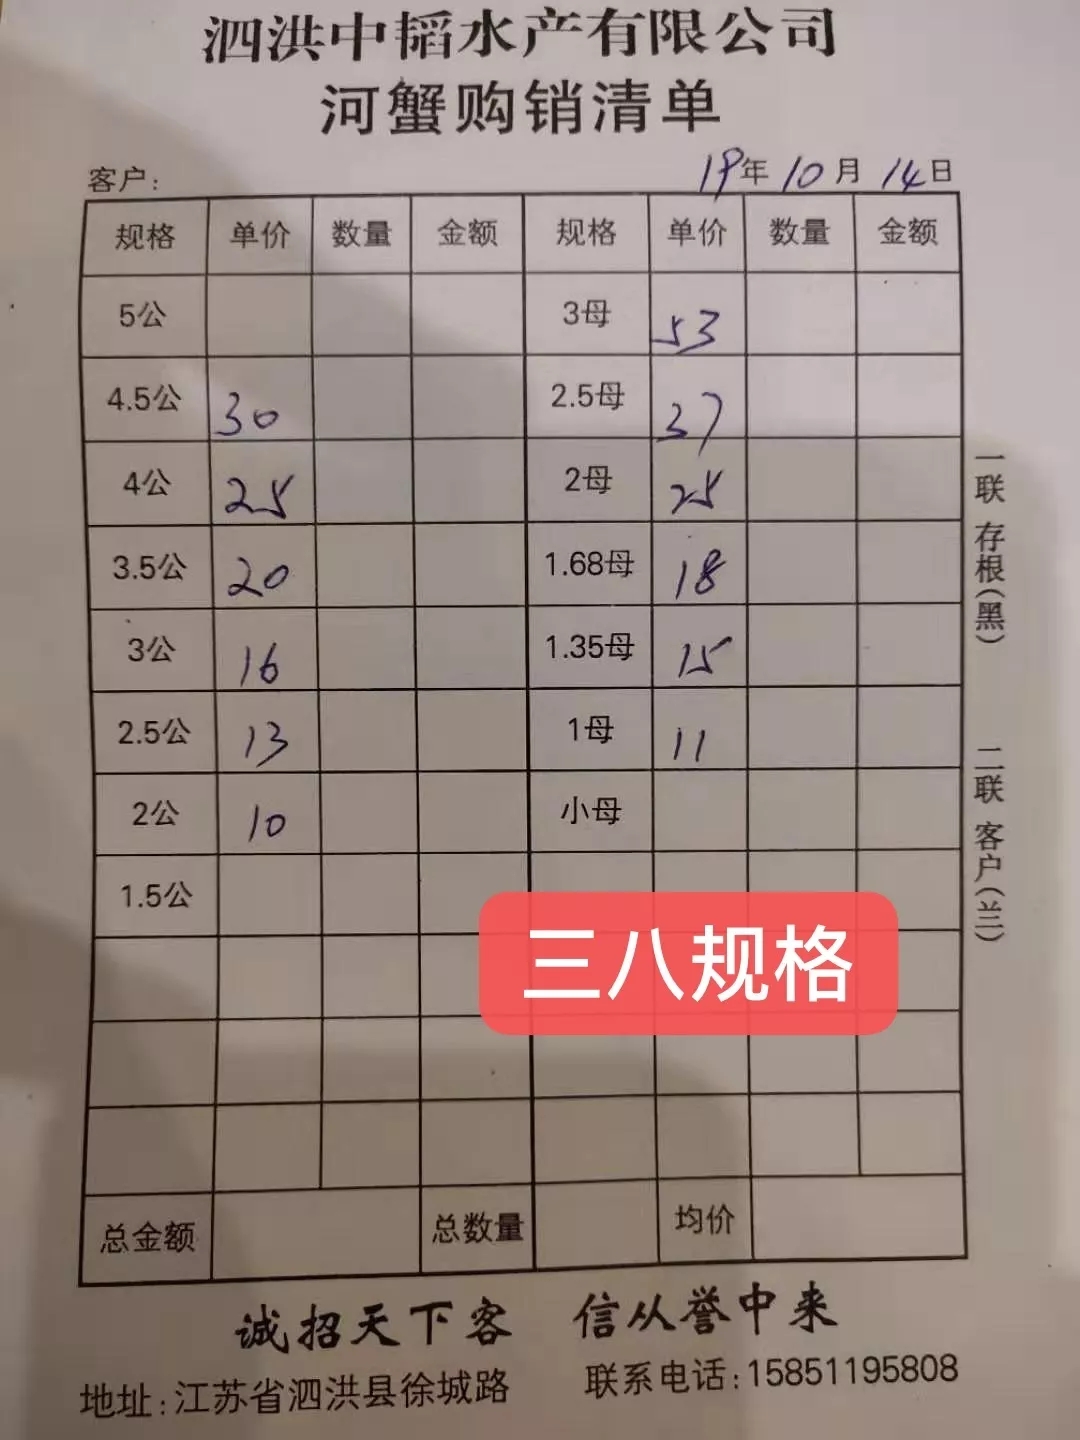 泗洪中韬水产有限公司
河蟹购销清单
客户: 19年10月14日
规格 单价 数量 金额 规格 单价 数量 金额
5公 3母 53
4.5公 30 2.5母 37
4公 25 2母 25
3.5公 20 1.68母 18
3公 16 1.35母 15
2.5公 13 1母 11
2公 10 小母
1.5公
三八规格
总金额 总数量 均价
一联 存根(黑) 二联 客户(兰)
诚招天下客 信从誉中来
地址:江苏省泗洪县徐城路 联系电话:15851195808